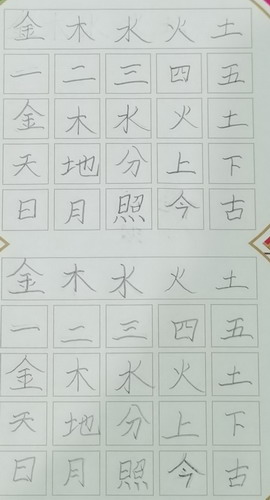 金木水火土
一二三四五
金木水火土
天地分上下
日月照今古
金木水火土
一二三四五
金木水火土
天地分上下
日月照今古